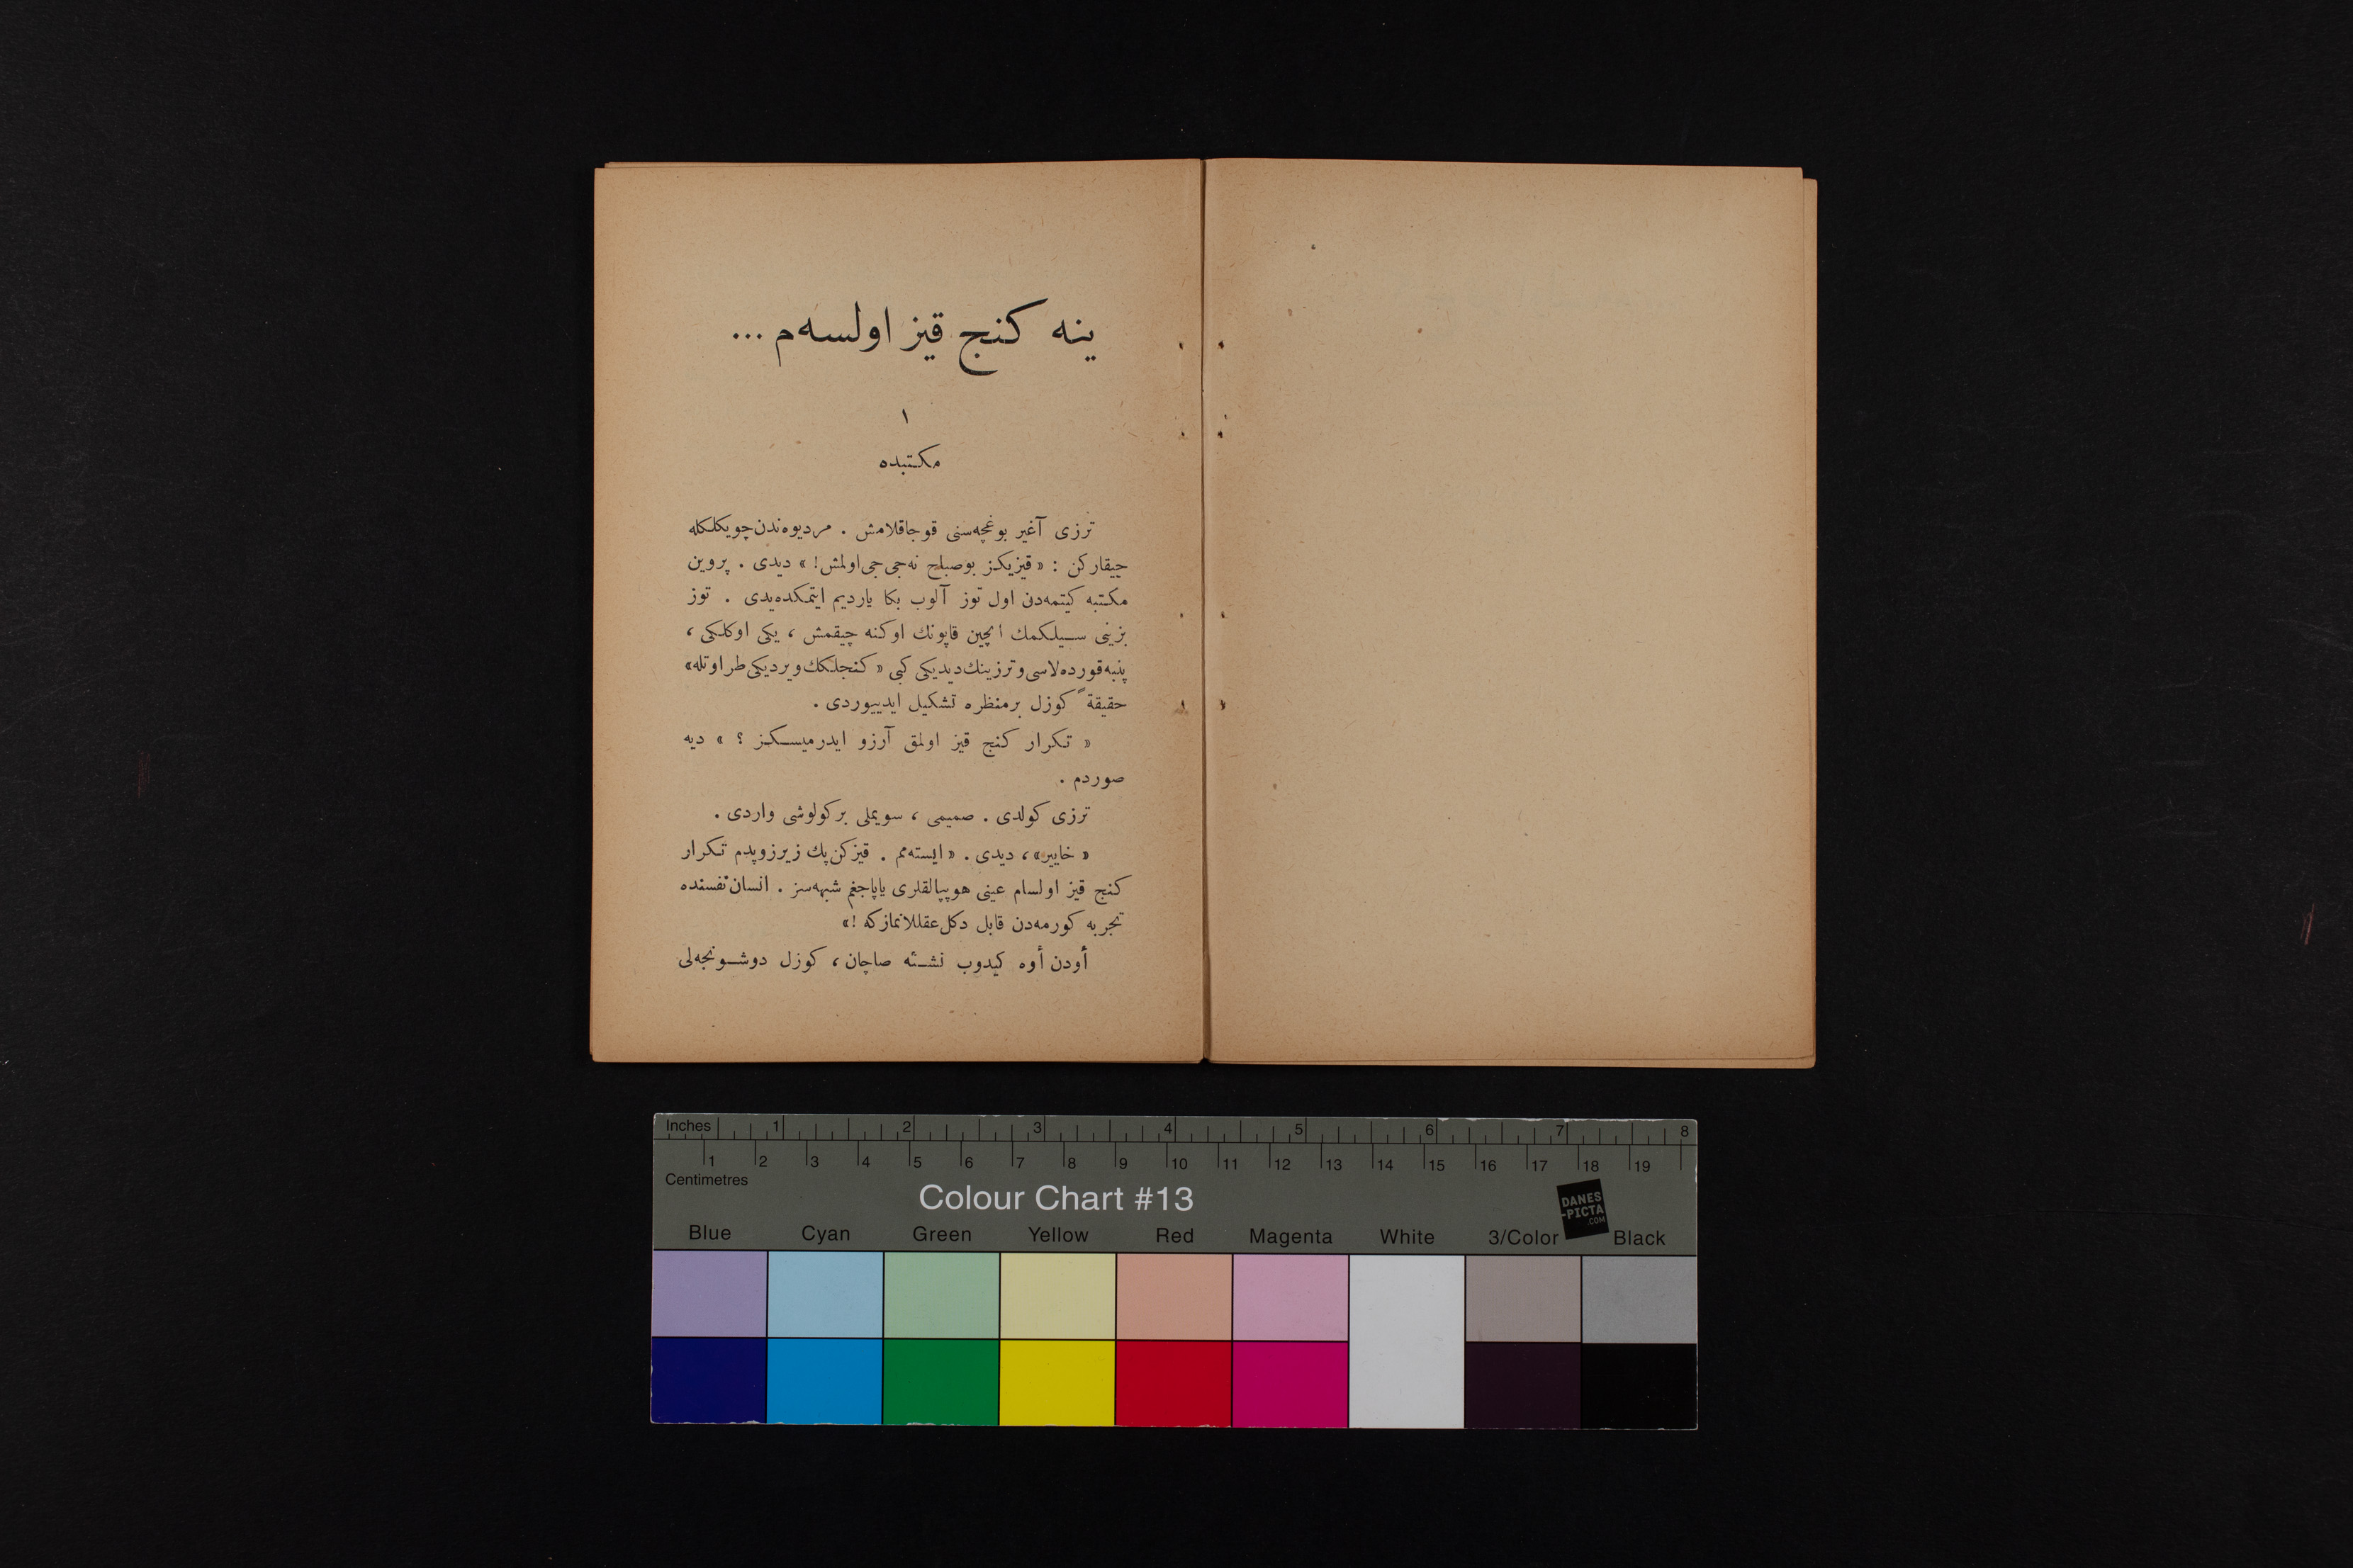 ينه كنج قيز اولسه‌م ...
١
مكتبده
ترزى آغير بوغچه‌سنى قوجاقلامش . مرديوه‌ندن چويكلكله
چيقاركن : « قيزيكز بوصباح نه‌جى‌جى اولمش! » ديدى . پروين
مكتبه كيتمه‌دن اول توز آلوب بكا يارديم ايتمكده‌يدى . توز
بزينى سيلكمك ايچين قاپونك اوكنه چيقمش ، يكى اوكلكى ،
پنبه قورده‌لاسى و ترزينك ديديكى كبى « كنجلكك ويرديكى طراوتله »
حقيقةً كوزل برمنظره تشكيل ايدييوردى .
« تكرار كنج قيز اولمق آرزو ايدرميسكز ؟ » ديه
صوردم .
ترزى كولدى . صميمى ، سويملى بركولوشى واردى .
« خايير » ، ديدى . « ايسته‌مم . قيزكن پك زيرزوپدم تكرار
كنج قيز اولسام عينى هوپپالقلرى ياپاجغم شبهه‌سز . انسان نفسنده
تجربه كورمه‌دن قابل دكل عقللانمازكه ! »
أودن أوه كيدوب نشئه صاچان ، كوزل دوشونجه‌لى
Inches 1 2 3 4 5 6 7 8
1 2 3 4 5 6 7 8 9 10 11 12 13 14 15 16 17 18 19
Centimetres
Colour Chart #13
DANES
-PICTA
.COM
Blue Cyan Green Yellow Red Magenta White 3/Color Black